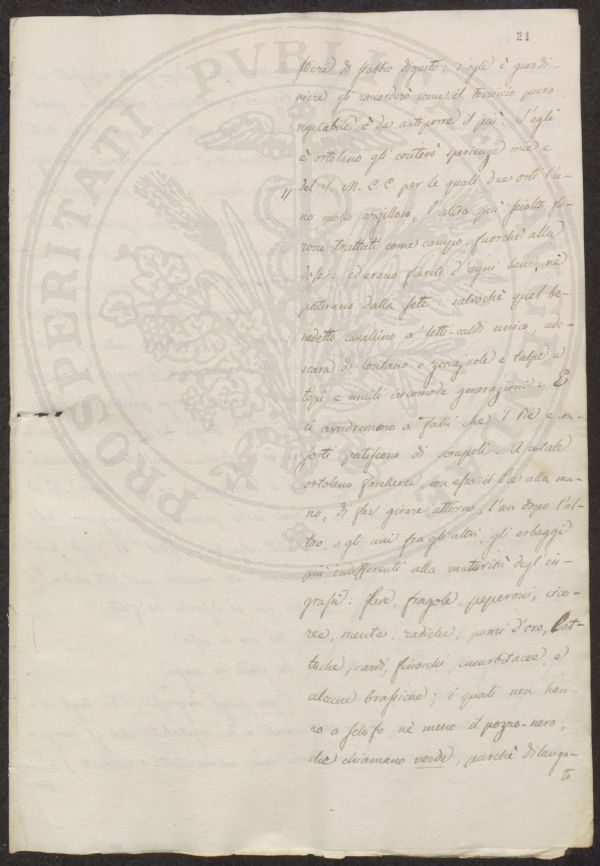 21
stiere di stabbio digesto; s'egli è giardi-
niere gli ricorderò come il terriccio puro
vegetabile è da anteporre il più. S'egli
è ortolano gli conterò sperienze mie e
del S. M. C. C. per le quali due orti l'u-
no molto argilloso, l'altro più sciolto fu-
rono trattati come campo, fuorchè alla
dose: ed erano fioriti d'ogni bene, nè
pativano dalla sete: salvochè quel be-
nedetto cavallino a' letti-caldi unico, ado-
scara di lontano e zoccajuole e talpe e
topi e simili incomode generazioni. E
ci avvedremo a' fatti che 'l Piè e
sorti patiscono di scrupoli. A
ortolano farebbesi, con esso il Piè alla ma-
no, di far girare attorno, l'un dopo l'al-
tro, o gli uni fra gli altri, gli erbaggi
più indifferenti alla maturità degl'in-
grassi: fave, fragole, peperoni, cico-
ree, mente, radiche, pomi d'oro, lat-
tuche, cardi, finocchi, cucurbitacee, e
alcune brassiche; i quali non han-
no a schifo nè meno il pozzo-nero,
che chiamano verde, purchè dilunga-
to
PROSPERITATI PVBLICAE